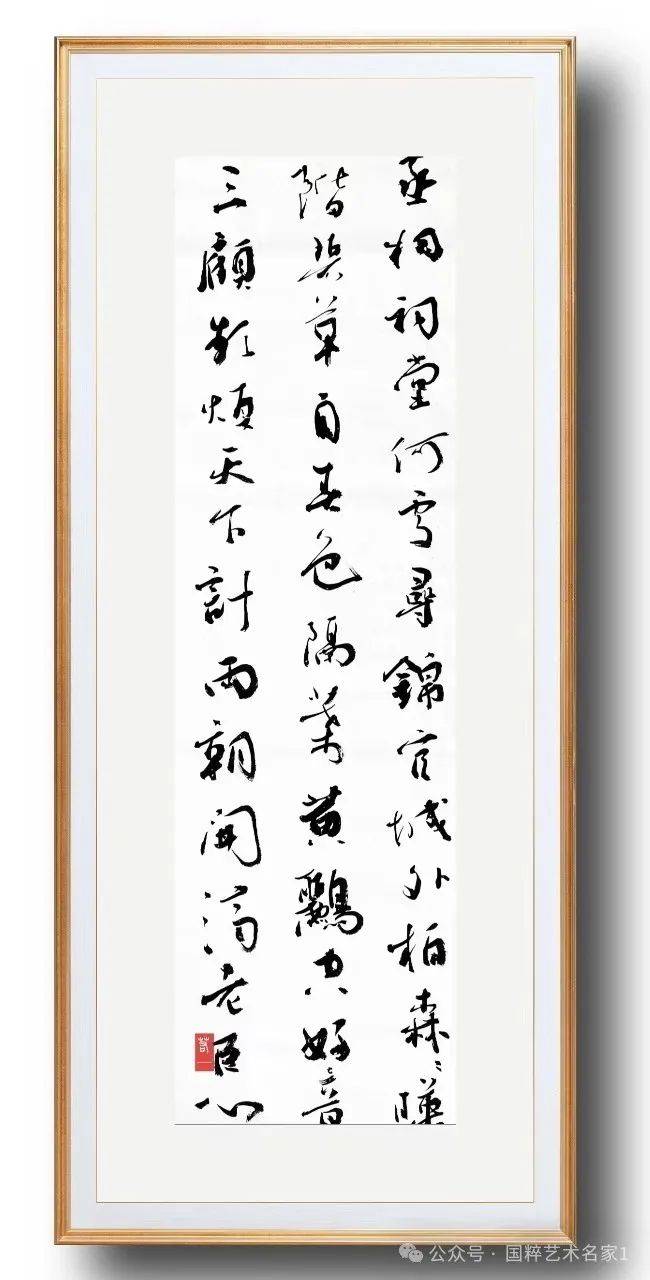 丞相祠堂何處尋錦官城外柏森々暎
階碧草自春色隔葉黃鸝空好音
三顧頻煩天下計兩朝開濟老臣心
公众号 · 国粹艺术名家1